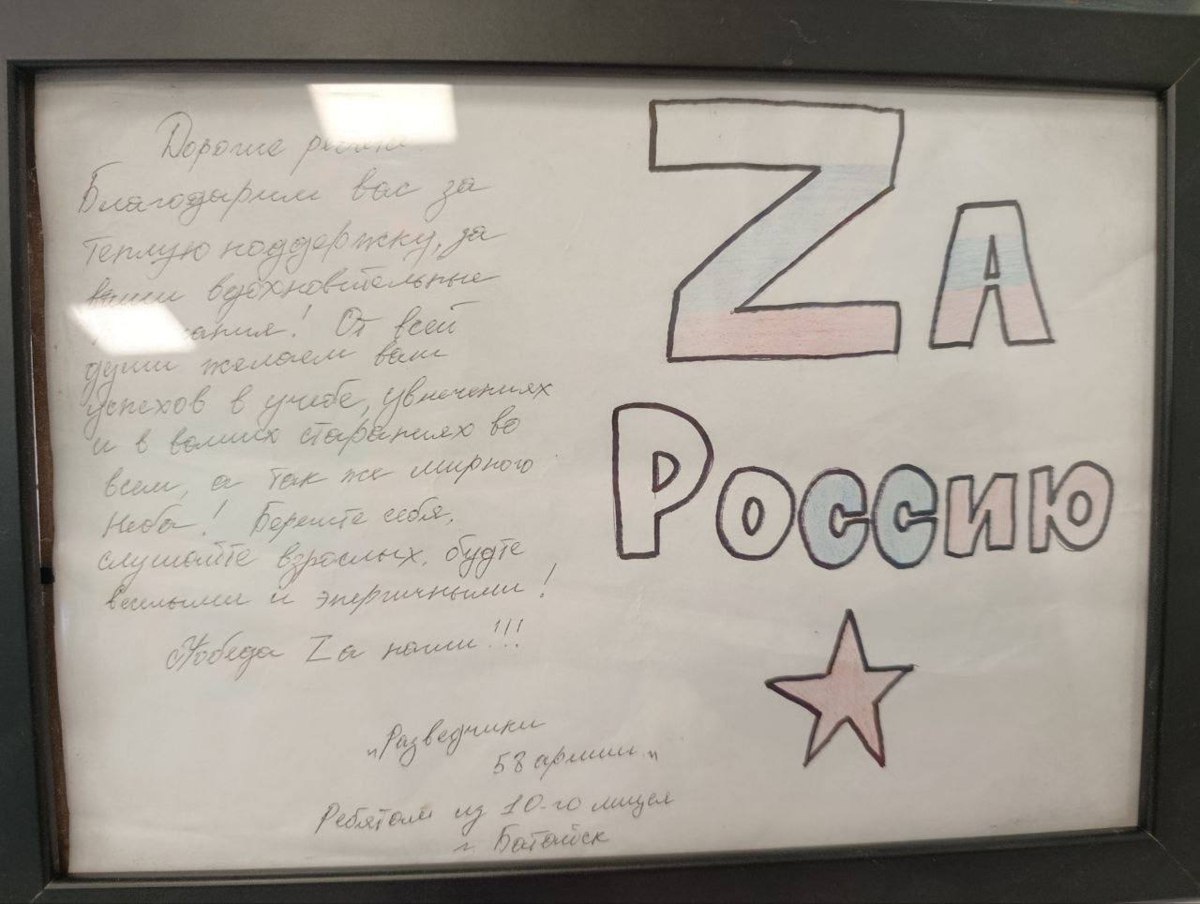 Дорогие
Благодарим вас за
теплую поддержку, за
ваши вдохновительные
От всей
души желаем вам
успехов в учебе, увлечениях
и в ваших стараниях во
всем, а так же мирного
неба! Берегите себя,
слушайте взрослых, будте
веселыми и энергичными!
Победа Zа нами!!!
„Разведчики
58 армии„
Ребятам из 10-го лицея
г. Батайск
Zа
Россию